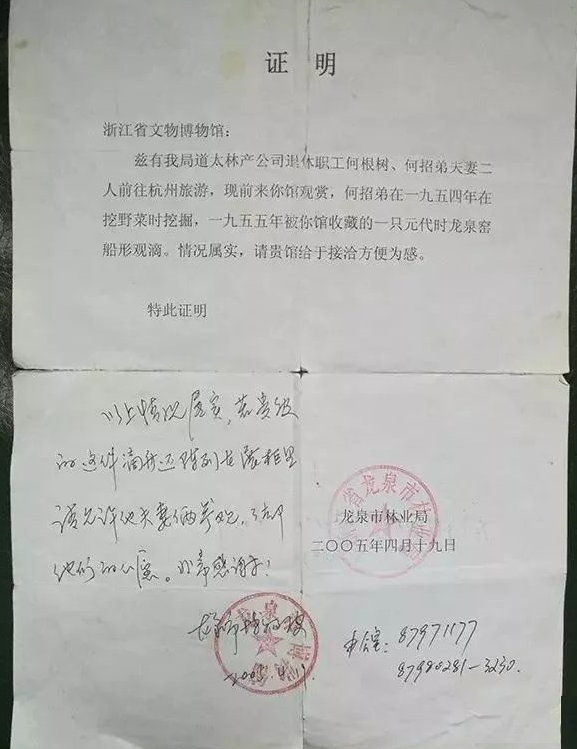 证 明
浙江省文物博物馆：
兹有我局道太林产公司退休职工何根树、何招弟夫妻二
人前往杭州旅游，现前来你馆观赏，何招弟在一九五四年在
挖野菜时挖掘，一九五五年被你馆收藏的一只元代时龙泉窑
船形观滴。情况属实，请贵馆给于接洽方便为感。
特此证明
以上情况属实，若贵馆
的这件滴我还陈列在展柜里
请允许他夫妻俩参观，
他们的心愿。非常感谢了！
省龙泉市林业
龙泉市林业局
二〇〇五年四月十九日
龙泉市博物馆
龙泉
2005
办公室：87971177
87980281-3230.